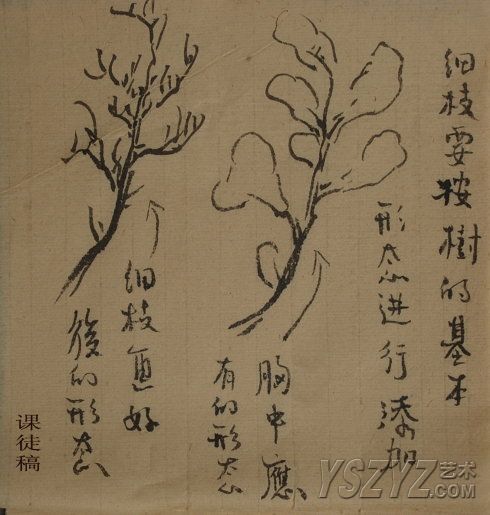 细枝要按樹的基本
形态进行添加
胸中應
有的形态
细枝画好
後的形态
课徒稿
YSZYZ艺术
.COM